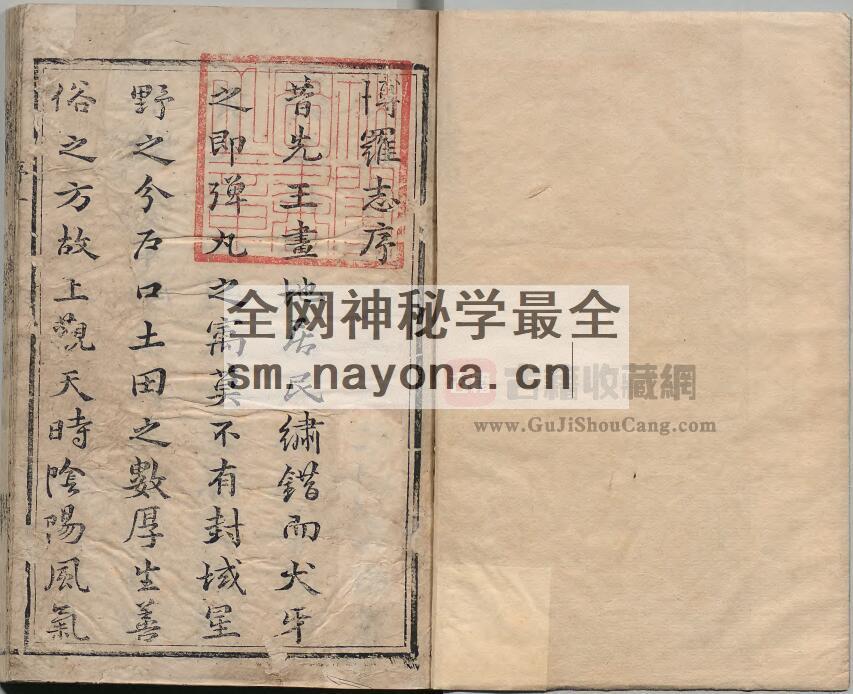 博羅志序
昔先王畫地居民繡錯而犬牙
之即弾丸之寓莫不有封域星
野之分户口土田之數厚生善
俗之方故上觀天時陰陽風氣
序一
全网神秘学最全
sm.nayona.cn
古籍收藏網
www.GuJiShouCang.com